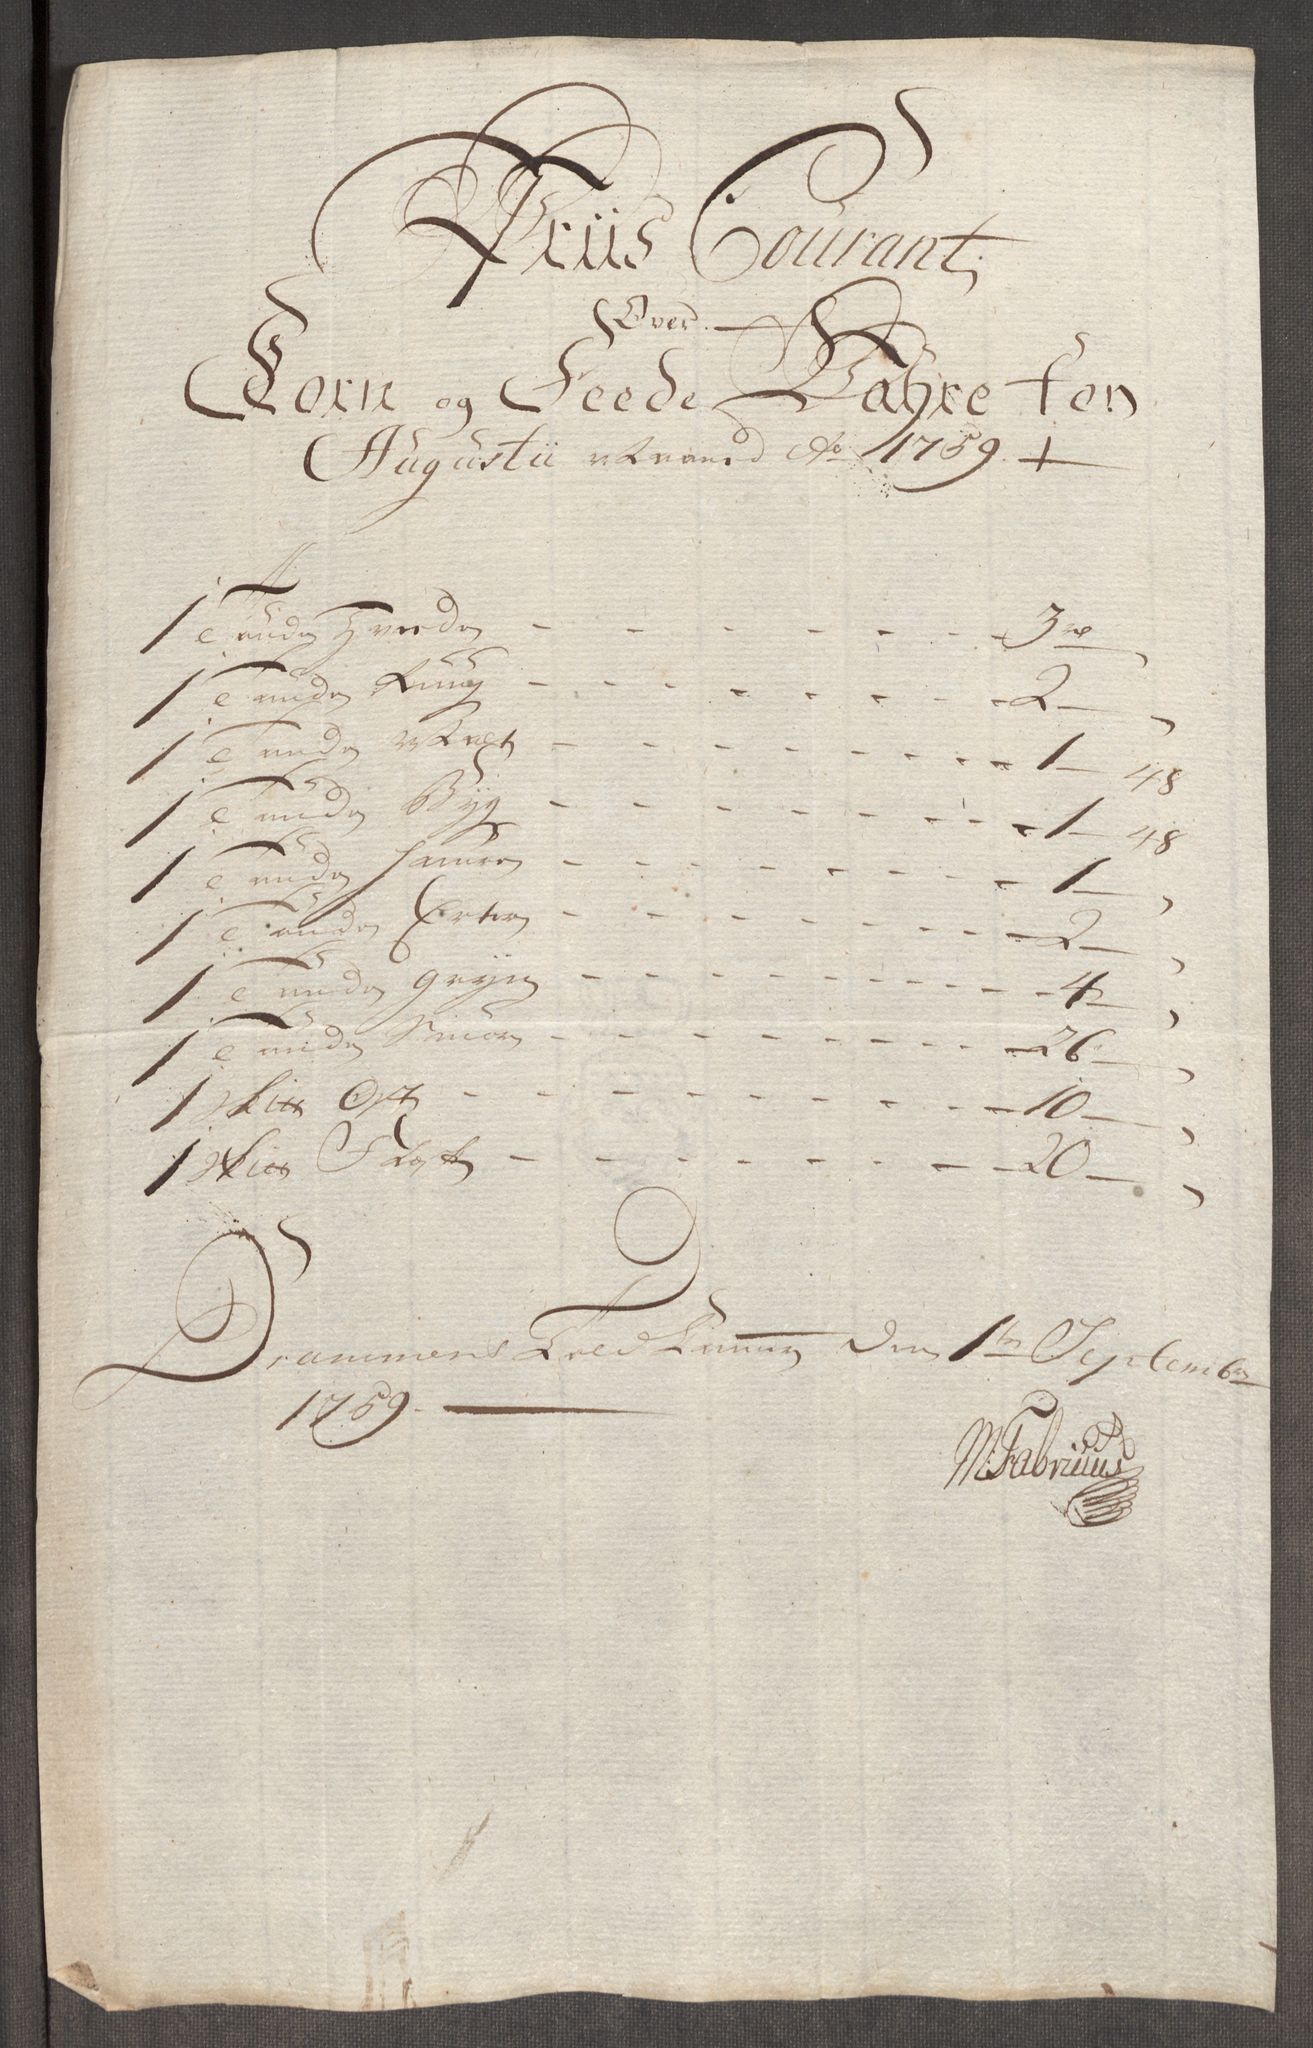 Priis Courant
Over
Corn og Feede Vahre for
Augustii Maaned Ao 1759
1 Tunde Hvede 3 rd
1 Tunde Rug 2
1 Tunde Malt 1 48
1 Tunde Byg 1 48
1 Tunde Haure 1
1 Tunde Erter 2
1 Tunde Gryn 4
1 Tunde Smør 26
1 Skip Ost 10
1 Skip Flesk 20
Drammens Told den 1ten Septembr
1759
M: Fabritius